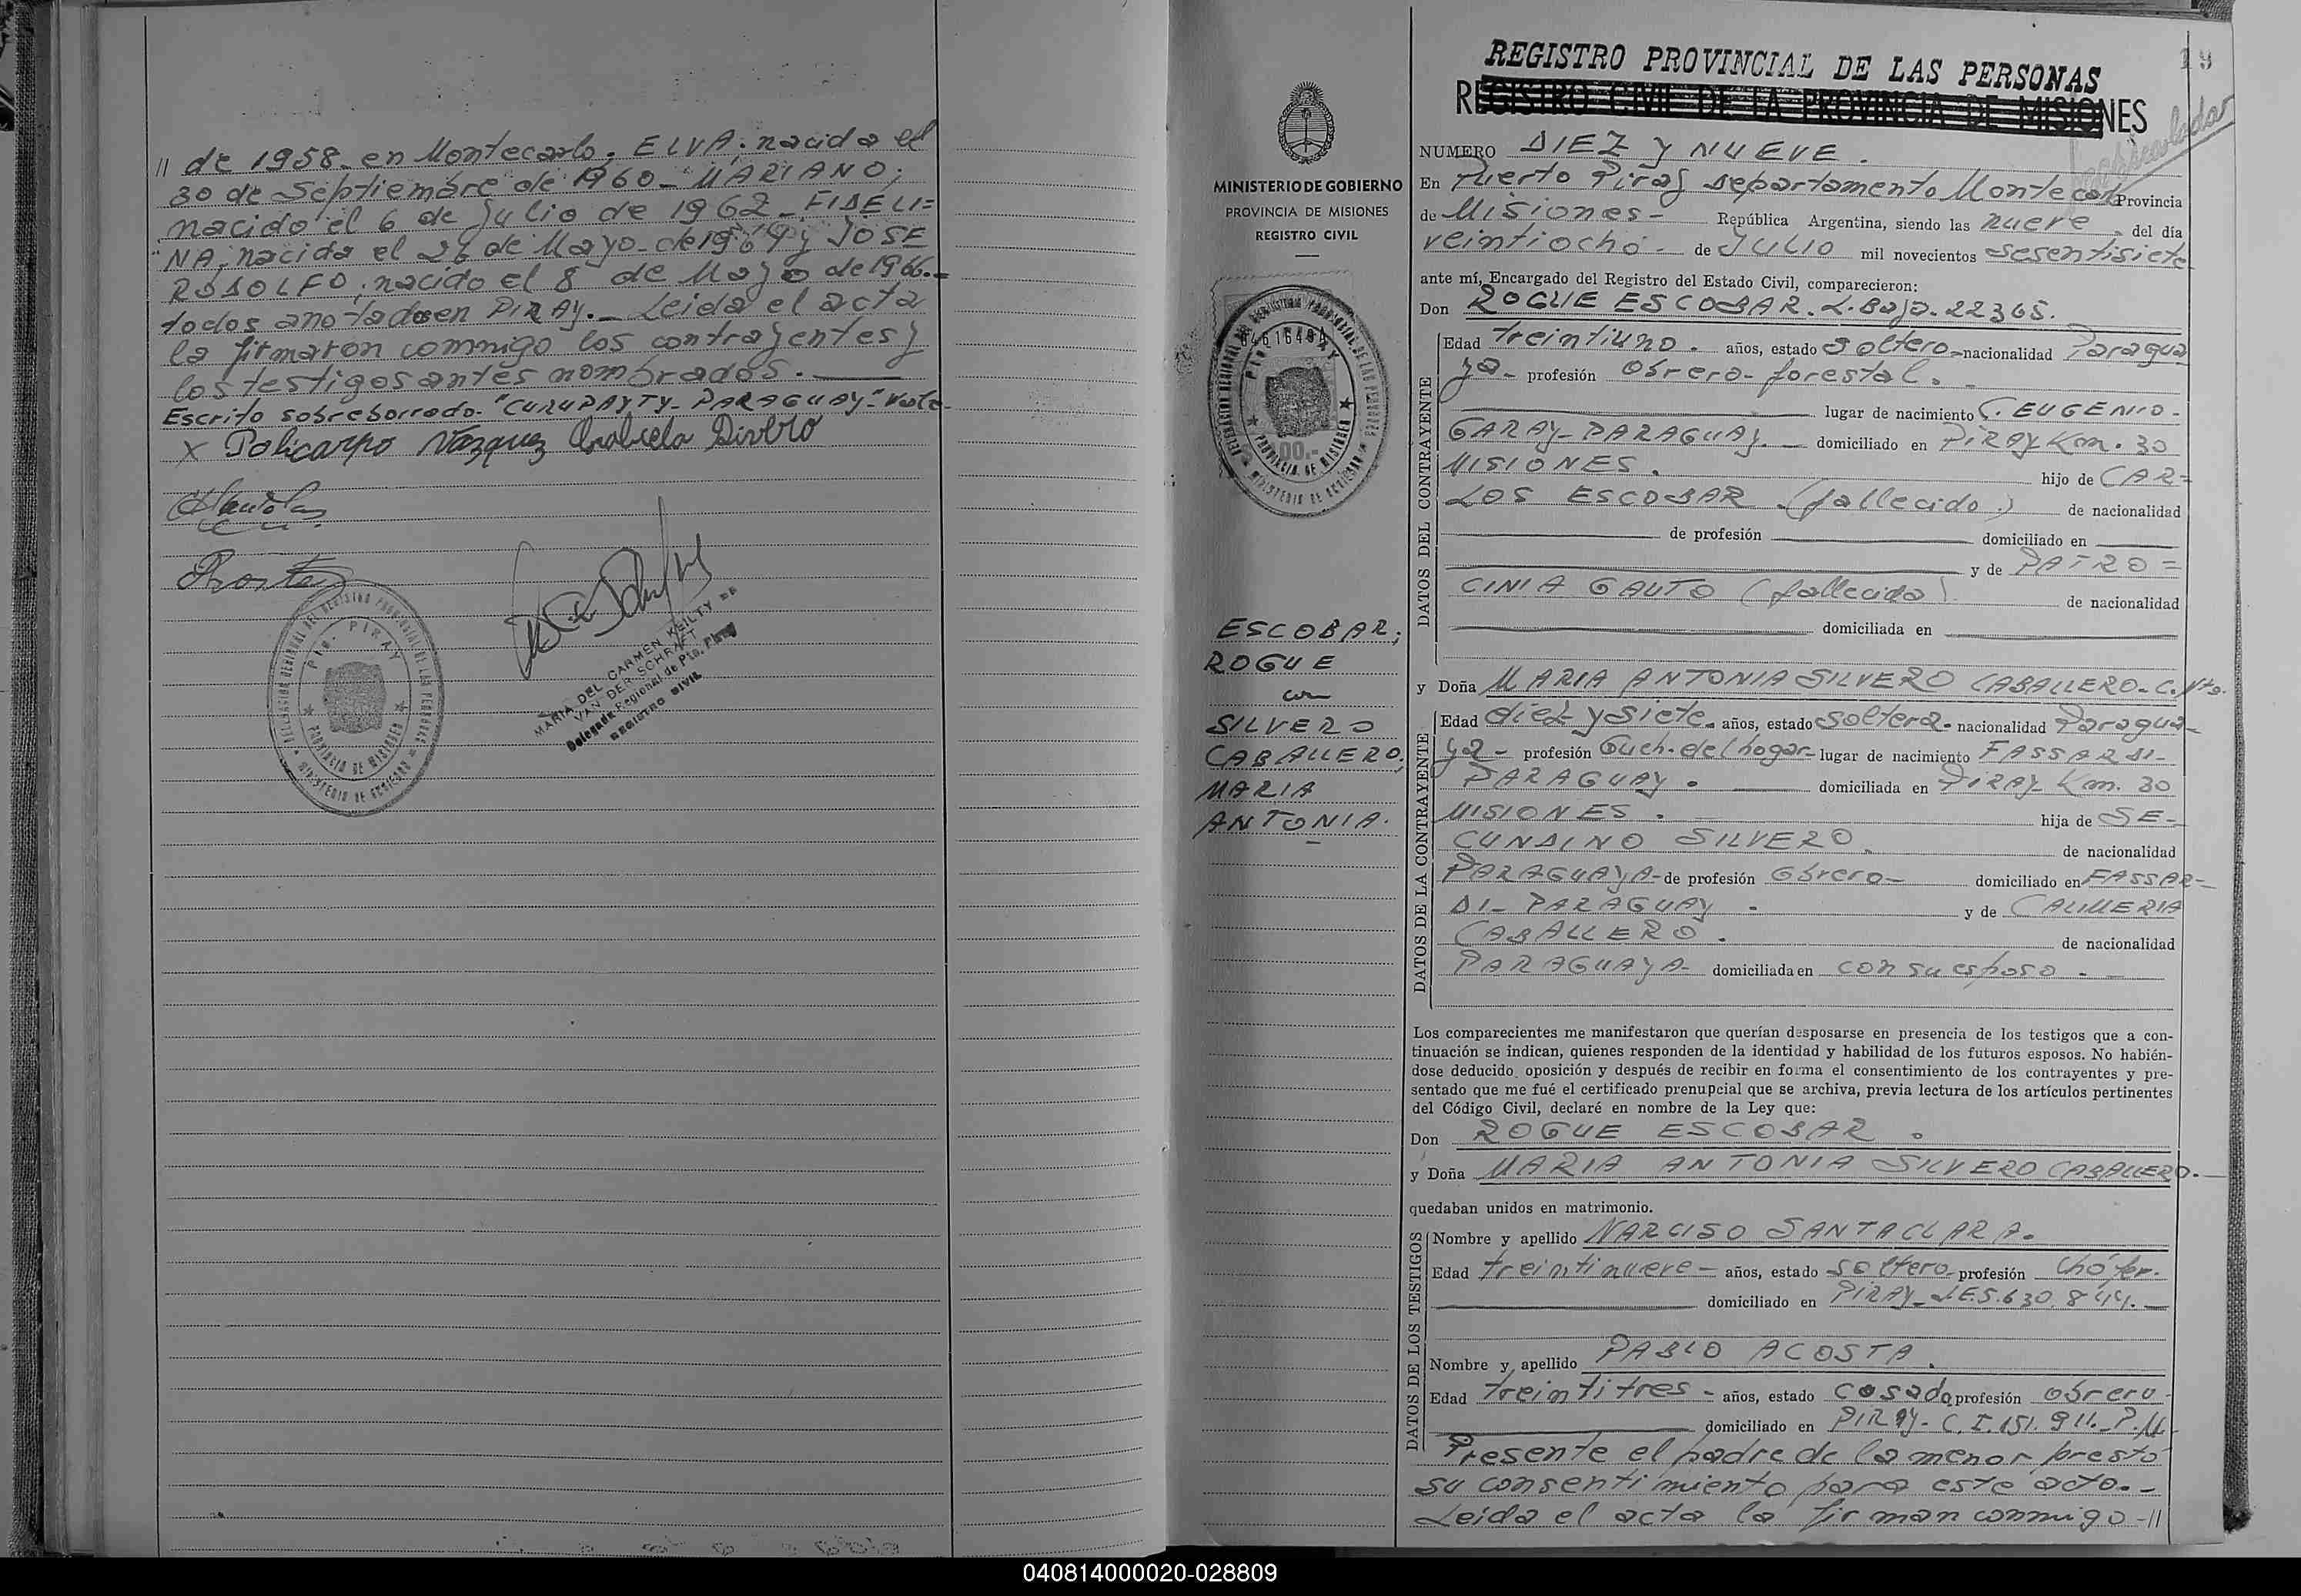 // de 1958. en Montecarlo; ELVA; nacida el
30 de Septiembre de 1960 - MARIANO;
nacido el 6 de Julio de 1962 - FIDELI=
NA; nacida el 26 de Mayo - de 1964 y JOSE
RODOLFO; nacido el 8 de Mayo de 1966.=
todos anotados en PIRAY. - Leida el acta
la firmaron conmigo los contrayentes y
los testigos antes nombrados. -
Escrito sobreborrado - "CURUPAYTY - PARAGUAY" - Vale -
X Policarpo Vazquez
MARIA DEL CARMEN KEILTY DE
VAN DER SCHRAFT
Delegada Regional de Pto. Piray
REGISTRO CIVIL
DELEGACION REGIONAL DEL REGISTRO PROVINCIAL DE LAS PERSONAS
Pto. PIRAY
PROVINCIA DE MISIONES
MINISTERIO DE GOBIERNO
MINISTERIO DE GOBIERNO
PROVINCIA DE MISIONES
REGISTRO CIVIL
DELEGACION REGIONAL DEL REGISTRO PROVINCIAL DE LAS PERSONAS
Pto. PIRAY
PROVINCIA DE MISIONES
MINISTERIO DE GOBIERNO
ESCOBAR;
ROGUE
con
SILVERO
CABALLERO;
MARIA
ANTONIA.
19
REGISTRO PROVINCIAL DE LAS PERSONAS
REGISTRO CIVIL DE LA PROVINCIA DE MISIONES
NUMERO DIEZ Y NUEVE.
En Puerto Piray departamento Montecarlo Provincia
de Misiones - República Argentina, siendo las nueve del día
veintiocho - de JULIO mil novecientos sesentisiete
ante mí, Encargado del Registro del Estado Civil, comparecieron:
Don ROGUE ESCOBAR. L. Baja. 22365.
DATOS DEL CONTRAYENTE
Edad treintiuno. años, estado soltero - nacionalidad Paragua
ya - profesión Obrero - forestal. -
lugar de nacimiento C. EUGENIO -
GARAY - PARAGUAY. - domiciliado en PIRAY Km. 30
MISIONES. hijo de CAR=
LOS ESCOBAR. (fallecido.) de nacionalidad
de profesión domiciliado en
y de PATRO=
CINIA GAUTO (fallecida) de nacionalidad
domiciliada en
y Doña MARIA ANTONIA SILVERO CABALLERO - C. Nto.
DATOS DE LA CONTRAYENTE
Edad diez y siete - años, estado soltera - nacionalidad Paragua-
ya - profesión Queh. del hogar - lugar de nacimiento FASSARDI -
PARAGUAY. - domiciliada en PIRAY Km. 30
MISIONES. hija de SE-
CUNDINO SILVERO. de nacionalidad
PARAGUAYA - de profesión Obrero - domiciliado en FASSAR-
DI - PARAGUAY - y de CALIMERIA
CABALLERO. de nacionalidad
PARAGUAYA - domiciliada en con su esposo -
Los comparecientes me manifestaron que querían desposarse en presencia de los testigos que a con-
tinuación se indican, quienes responden de la identidad y habilidad de los futuros esposos. No habién-
dose deducido oposición y después de recibir en forma el consentimiento de los contrayentes y pre-
sentado que me fué el certificado prenupcial que se archiva, previa lectura de los artículos pertinentes
del Código Civil, declaré en nombre de la Ley que:
Don ROGUE ESCOBAR.
y Doña MARIA ANTONIA SILVERO CABALLERO. -
quedaban unidos en matrimonio.
DATOS DE LOS TESTIGOS
Nombre y apellido NARCISO SANTACLARA.
Edad treintinueve - años, estado soltero profesión Chófer.
domiciliado en PIRAY - L.E. 5.630.844. -
Nombre y apellido PABLO ACOSTA.
Edad treintitres - años, estado casado profesión obrero -
domiciliado en PIRAY - C.I. 151.911. - P.M.
Presente el padre de la menor, prestó
su consentimiento para este acto. -
Leida el acta la firman conmigo - //
040814000020-028809